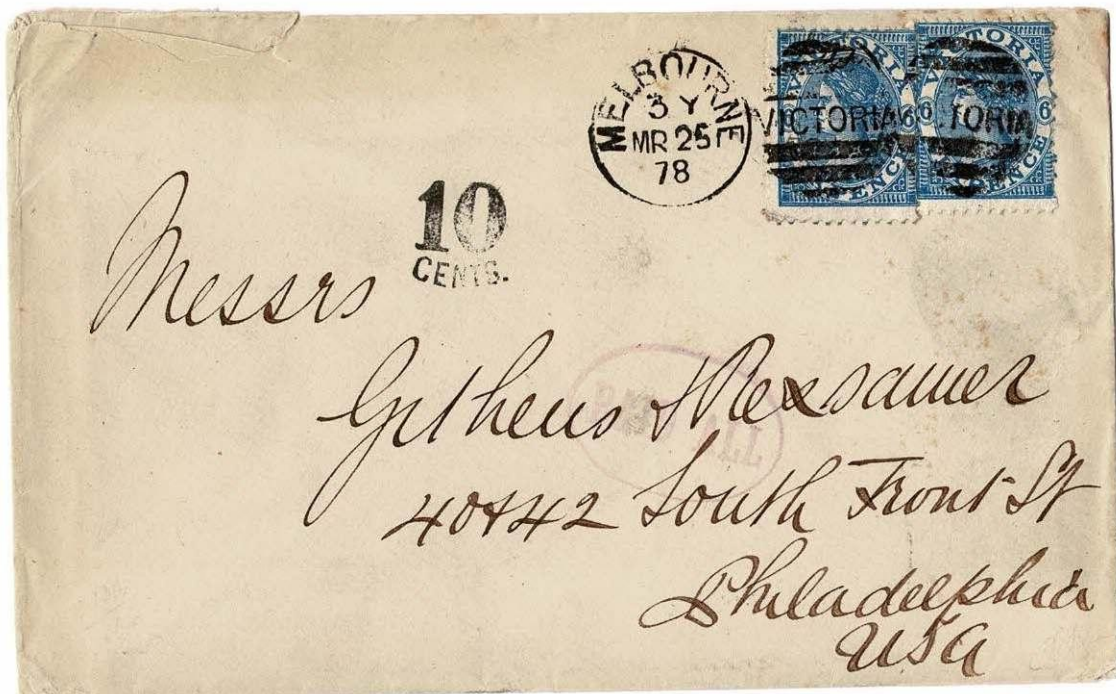 MELBOURNE
3 Y
MR 25
78
VICTORIA VICTORIA
6 6 6
PENCE PENCE
VICTORIA TORIA
10
CENTS.
Messrs
Githens & Rexsamer
40 & 42 South Front St
Philadelphia
USA